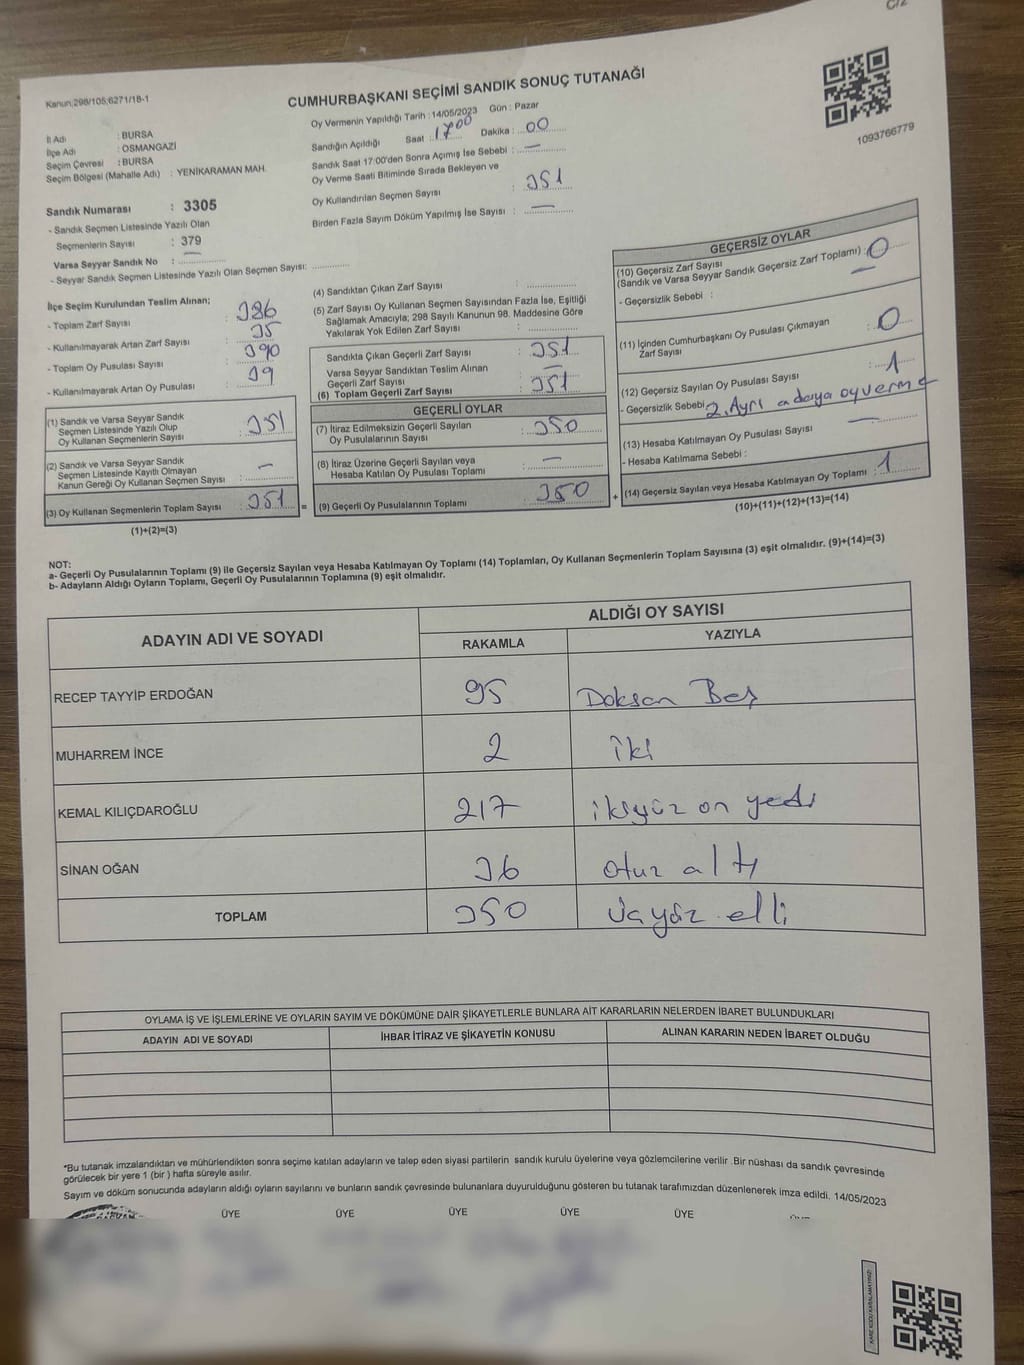 C/2
Kanun;298/105;6271/18-1
CUMHURBAŞKANI SEÇİMİ SANDIK SONUÇ TUTANAĞI
1093766779
İl Adı : BURSA
İlçe Adı : OSMANGAZİ
Seçim Çevresi : BURSA
Seçim Bölgesi (Mahalle Adı) : YENİKARAMAN MAH.
Oy Vermenin Yapıldığı Tarih : 14/05/2023 Gün : Pazar
Sandığın Açıldığı Saat : 1700 Dakika : 00
Sandık Saat 17:00'den Sonra Açımış İse Sebebi : —
Oy Verme Saati Bitiminde Sırada Bekleyen ve
Oy Kullandırılan Seçmen Sayısı : 351
Birden Fazla Sayım Döküm Yapılmış İse Sayısı : —
Sandık Numarası : 3305
- Sandık Seçmen Listesinde Yazılı Olan
Seçmenlerin Sayısı : 379
Varsa Seyyar Sandık No : —
- Seyyar Sandık Seçmen Listesinde Yazılı Olan Seçmen Sayısı:
İlçe Seçim Kurulundan Teslim Alınan;
- Toplam Zarf Sayısı : 386
- Kullanılmayarak Artan Zarf Sayısı : 35
- Toplam Oy Pusulası Sayısı : 390
- Kullanılmayarak Artan Oy Pusulası : 39
(1) Sandık ve Varsa Seyyar Sandık
Seçmen Listesinde Yazılı Olup
Oy Kullanan Seçmenlerin Sayısı : 351
(2) Sandık ve Varsa Seyyar Sandık
Seçmen Listesinde Kayıtlı Olmayan
Kanun Gereği Oy Kullanan Seçmen Sayısı : —
(3) Oy Kullanan Seçmenlerin Toplam Sayısı : 351
(1)+(2)=(3)
(4) Sandıktan Çıkan Zarf Sayısı :
(5) Zarf Sayısı Oy Kullanan Seçmen Sayısından Fazla İse, Eşitliği
Sağlamak Amacıyla; 298 Sayılı Kanunun 98. Maddesine Göre
Yakılarak Yok Edilen Zarf Sayısı :
Sandıkta Çıkan Geçerli Zarf Sayısı : 351
Varsa Seyyar Sandıktan Teslim Alınan
Geçerli Zarf Sayısı : —
(6) Toplam Geçerli Zarf Sayısı : 351
GEÇERLİ OYLAR
(7) İtiraz Edilmeksizin Geçerli Sayılan
Oy Pusulalarının Sayısı : 350
(8) İtiraz Üzerine Geçerli Sayılan veya
Hesaba Katılan Oy Pusulası Toplamı : —
(9) Geçerli Oy Pusulalarının Toplamı : 350
=
+
GEÇERSİZ OYLAR
(10) Geçersiz Zarf Sayısı
(Sandık ve Varsa Seyyar Sandık Geçersiz Zarf Toplamı) : 0
- Geçersizlik Sebebi : —
(11) İçinden Cumhurbaşkanı Oy Pusulası Çıkmayan
Zarf Sayısı : 0
(12) Geçersiz Sayılan Oy Pusulası Sayısı : 1
- Geçersizlik Sebebi : 2. Ayrı adaya oyverme
(13) Hesaba Katılmayan Oy Pusulası Sayısı : —
- Hesaba Katılmama Sebebi :
(14) Geçersiz Sayılan veya Hesaba Katılmayan Oy Toplamı : 1
(10)+(11)+(12)+(13)=(14)
NOT:
a- Geçerli Oy Pusulalarının Toplamı (9) ile Geçersiz Sayılan veya Hesaba Katılmayan Oy Toplamı (14) Toplamları, Oy Kullanan Seçmenlerin Toplam Sayısına (3) eşit olmalıdır. (9)+(14)=(3)
b- Adayların Aldığı Oyların Toplamı, Geçerli Oy Pusulalarının Toplamına (9) eşit olmalıdır.
ADAYIN ADI VE SOYADI
ALDIĞI OY SAYISI
RAKAMLA YAZIYLA
RECEP TAYYİP ERDOĞAN 95 Doksan Beş
MUHARREM İNCE 2 iki
KEMAL KILIÇDAROĞLU 217 ikiyüz on yedi
SİNAN OĞAN 36 otuz altı
TOPLAM 350 üçyüz elli
OYLAMA İŞ VE İŞLEMLERİNE VE OYLARIN SAYIM VE DÖKÜMÜNE DAİR ŞİKAYETLERLE BUNLARA AİT KARARLARIN NELERDEN İBARET BULUNDUKLARI
ADAYIN ADI VE SOYADI İHBAR İTİRAZ VE ŞİKAYETİN KONUSU ALINAN KARARIN NEDEN İBARET OLDUĞU
*Bu tutanak imzalandıktan ve mühürlendikten sonra seçime katılan adayların ve talep eden siyasi partilerin sandık kurulu üyelerine veya gözlemcilerine verilir. Bir nüshası da sandık çevresinde
görülecek bir yere 1 (bir) hafta süreyle asılır.
Sayım ve döküm sonucunda adayların aldığı oyların sayılarını ve bunların sandık çevresinde bulunanlara duyurulduğunu gösteren bu tutanak tarafımızdan düzenlenerek imza edildi. 14/05/2023
ÜYE ÜYE ÜYE ÜYE ÜYE
KARE KODU KARALAMAYINIZ!